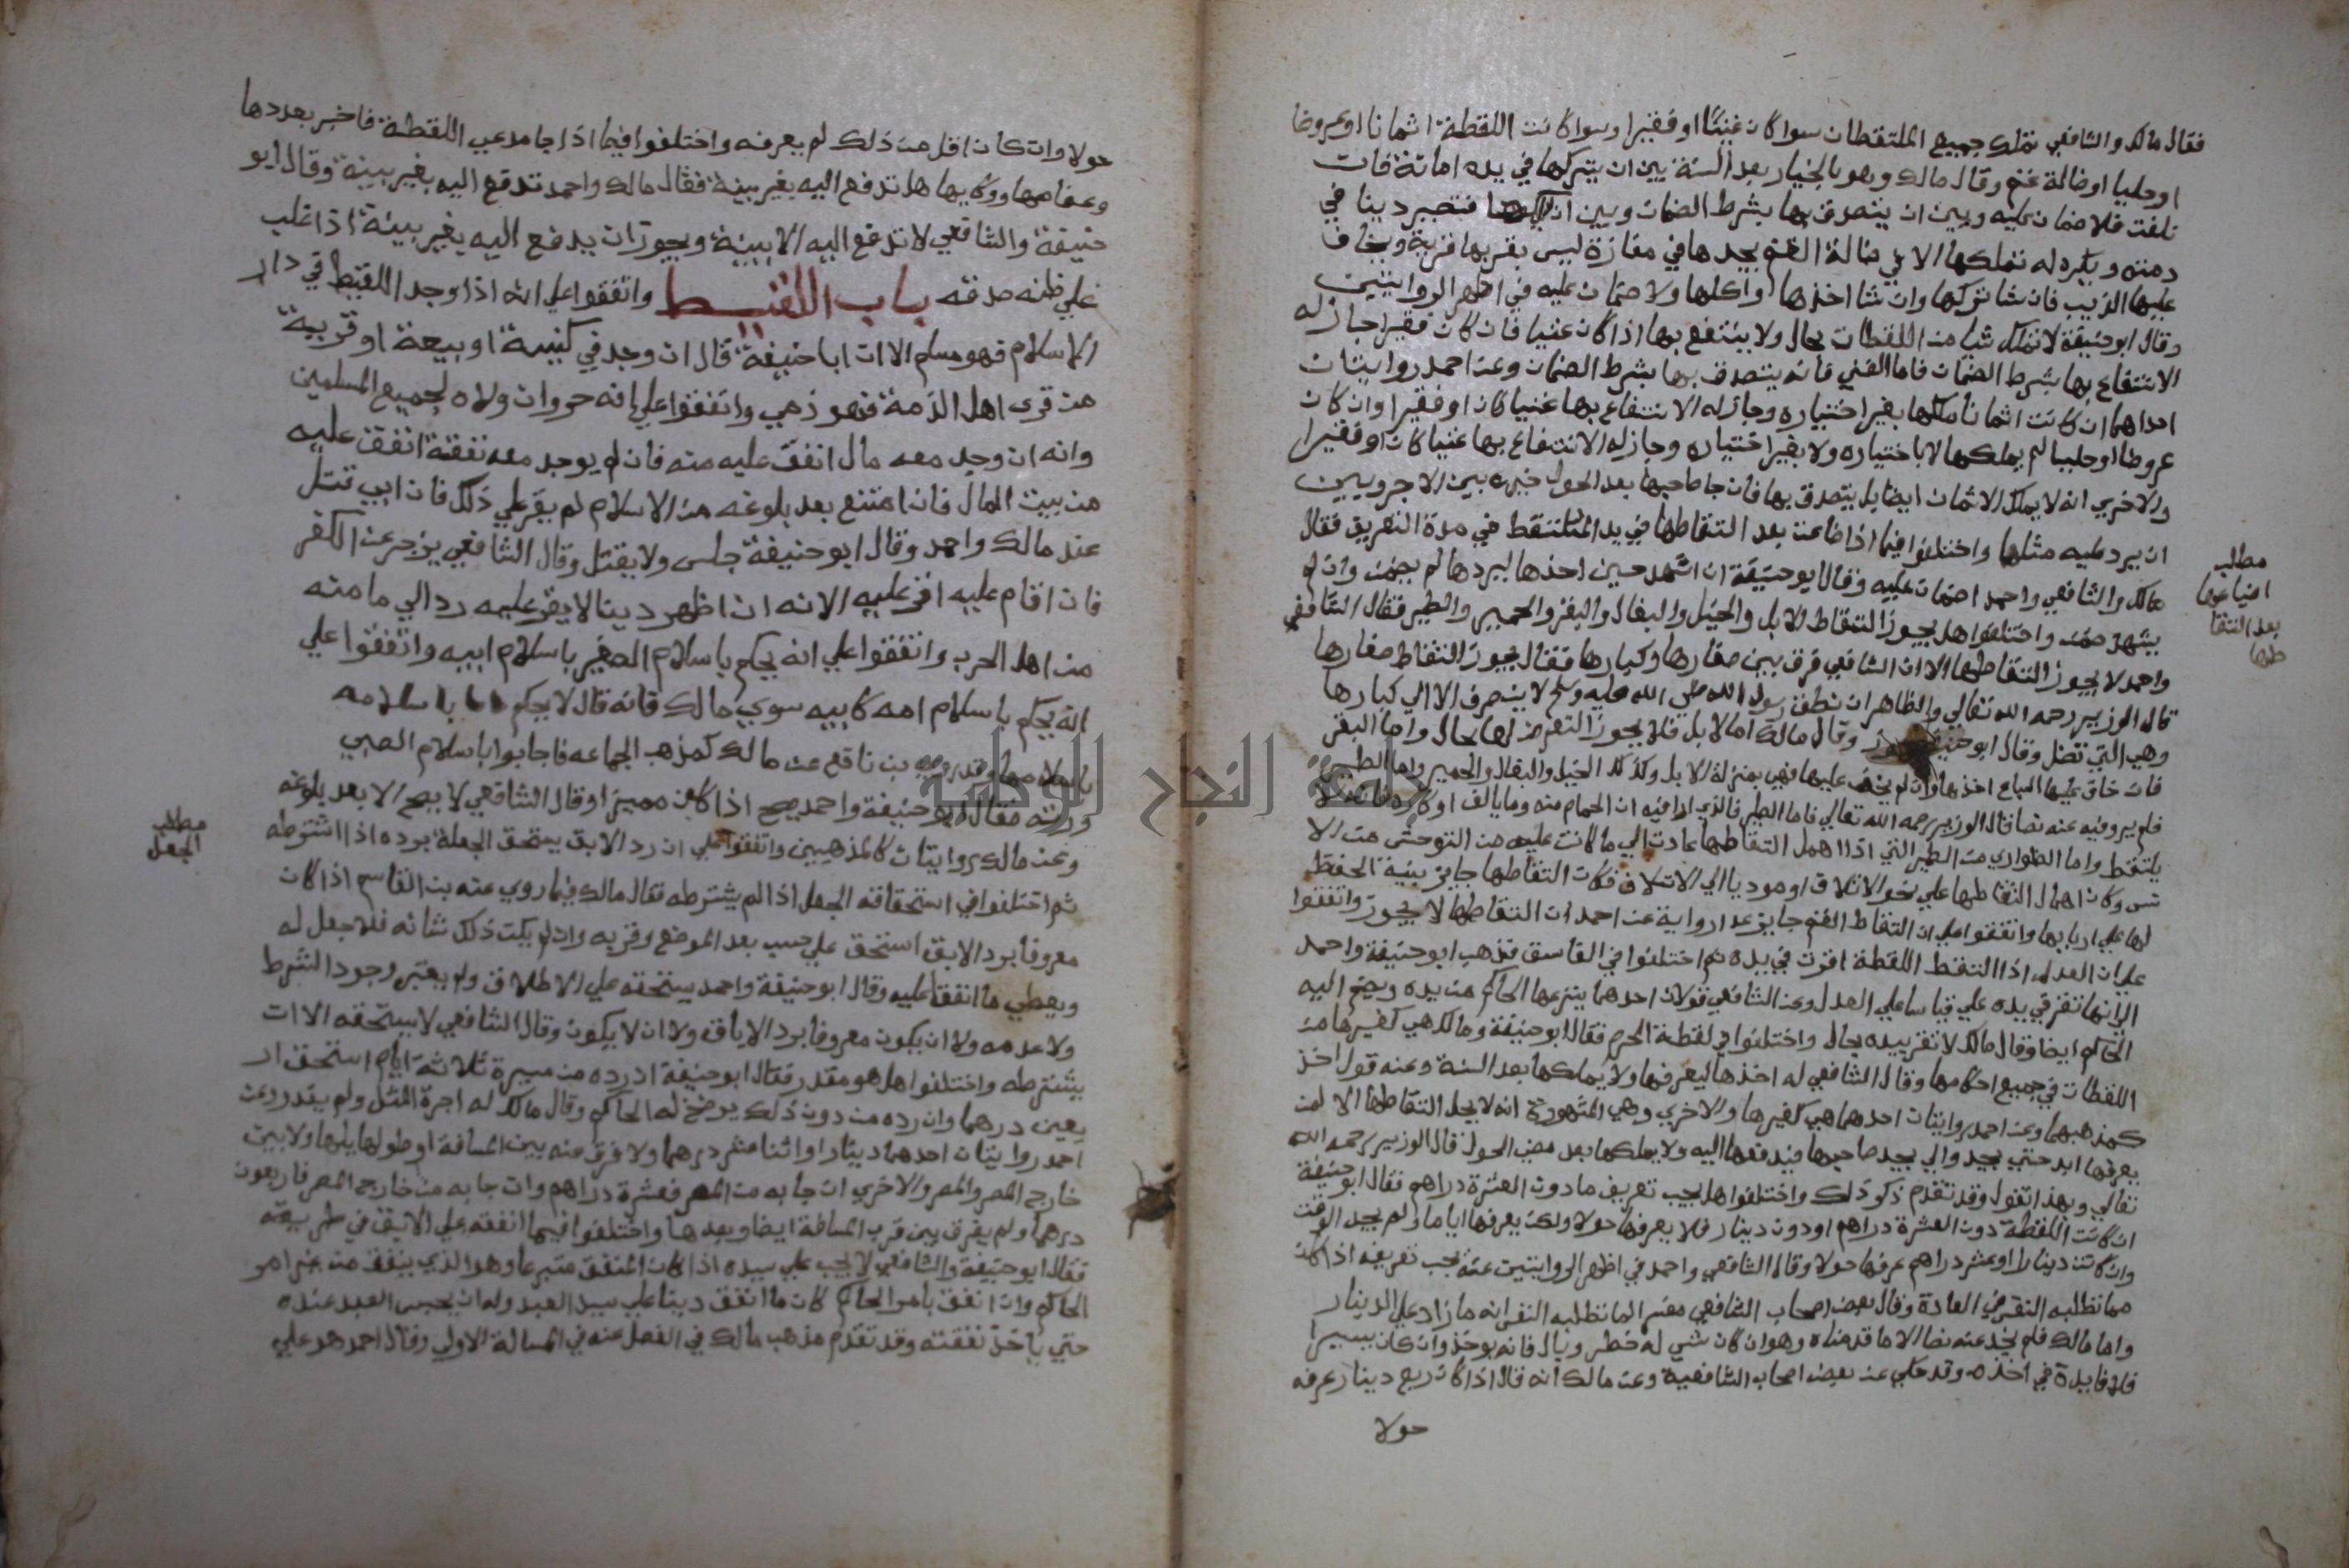 فقال مالك والشافعي تملك جميع الملتقطات سوا كان غنيا او فقيرا وسوا كانت اللقطة اثمانا او عروضا
او حليا او ضالة غنم وقال مالك وهو بالخيار بعد السنة بين ان يتركها في يده امانة فان
تلفت فلا ضمان عليه وبين ان يتصدق بها بشرط الضمان وبين ان فتصير دينا في
ذمته ويكره له تملكها الا في ضالة الغنم يجدها في مفازة ليس بقربها قرية ويخاف
عليها الذيب فان شا تركها وان شا اخذها واكلها ولا ضمان عليه في اظهر الروايتين
وقال ابو حنيفة لا تملك شيا من اللقطات بحال ولا ينتفع بها اذا كان غنيا فان كان فقيرا جاز له
الانتفاع بها بشرط الضمان فاما الغني فانه يتصدق بها بشرط الضمان وعن احمد روايتان
احداهما ان كانت اثمانا ملكها بغير اختياره وجاز له الانتفاع بها غنيا كان او فقيرا وان كان
عروضا او حليا لم يملكها لا باختياره ولا بغير اختياره وجاز له الانتفاع بها غنيا كان او فقيرا
والاخري انه لا يملك الاثمان ايضا بل يتصدق بها فان جا صاحبها بعد الحول خيره بين الاجر وبين
ان يرد عليه مثلها واختلفوا فيما اذا ضاعت بعد التقاطها في يد الملتقط في مدة التعريف فقال
مالك والشافعي واحمد لا ضمان عليه وقال ابو حنيفة ان اشهد حين اخذها ليردها لم يضمن وان لم
يشهد ضمن واختلفوا هل يجوز التقاط الابل والخيل والبغال والبقر والحمير والطير فقال الشافعي
واحمد لا يجوز التقاطها الا ان الشافعي فرق بين صغارها وكبارها فقال يجوز التقاط صغارها
قال الوزير رحمه الله تعالي والظاهر ان نطق رسول الله صلى الله عليه وسلم لا ينصرف الا الي كبارها
وهي التي تضل وقال ابو حنيفة يجوز وقال مالك اما الابل فلا يجوز التعرض لها بحال واما البقر
فان خاف عليها السباع اخذها وان لم يخف عليها فهي بمنزلة الابل وكذلك الخيل والبغال والحمير واما الطير
فلم يرو فيه عنه نصا قال الوزير رحمه الله تعالي فاما الطير فالذي اراه فيه ان الحمام منه وما يالف اوكاره فانه لا
يلتقط واما الضواري من الطير التي اذا اهمل التقاطها عادت الي ما كانت عليه من التوحش من الا
نس وكان اهمال التقاطها علي نحو الاتلاف او موديا الي الاتلاف فكان التقاطها جايز بنية الحفظ
لها علي اربابها واتفقوا علي ان التقاط الغنم جايز عدا رواية عن احمد ان التقاطها لا يجوز واتفقوا
علي ان العدل اذا التقط اللقطة اقرت في يده ثم اختلفوا في الفاسق فذهب ابو حنيفة واحمد
الي انها تقر في يده علي قياسا علي العدل وعن الشافعي قولان احدهما ينتزعها الحاكم من يده ويضم اليه
الحاكم ايضا وقال مالك لا تقر بيده بحال واختلفوا في لقطة الحرم فقال ابو حنيفة ومالك هي كغيرها من
اللقطات في جميع احكامها وقال الشافعي له اخذها ليعرفها ولا يملكها بعد السنة وعنه قول اخر
كمذهبهما وعن احمد روايتان احدهما هي كغيرها والاخري وهي المشهورة انه لا يحل التقاطها الا لمن
يعرفها ابدا حتي يجد والي يجد صاحبها فيدفعها اليه ولا يملكها بعد مضي الحول قال الوزير رحمه الله
تعالي وبهذا اقول وقد تقدم ذكر ذلك واختلفوا هل يجب تعريف ما دون العشرة دراهم فقال ابو حنيفة
ان كانت اللقطة دون العشرة دراهم او دون دينار فلا يعرفها حولا ولكن يعرفها اياما ولم يجد الوقت
وان كانت دينارا او عشر دراهم عرفها حولا وقال الشافعي واحمد في اظهر الروايتين عنه يجب تعريفه اذا كان
مما تطلبه النفس في العادة وقال بعض اصحاب الشافعي مفسر لما تطلبه النفس انه ما زاد علي الدينار
واما مالك فلم نجد عنه نصا الا ما قدمناه وهو ان كان شي له خطر وبال فانه يوخذ وان كان يسيرا
فلا فايدة في اخذه وقد حكي عن بعض اصحاب الشافعية وعن مالك انه قال اذا كان ربع دينار عرفه
حولا
مطلب
اضياعها
بعد التقا
طها
حولا وان كان اقل من ذلك لم يعرفه واختلفوا فيما اذا جا مدعي اللقطة فاخبر بعددها
وعفاصها ووكايها هل تدفع اليه بغير بينة فقال مالك واحمد تدفع اليه بغير بينة وقال ابو
حنيفة والشافعي لا تدفع اليه الا ببينة ويجوز ان يدفع اليه بغير بينة اذا غلب
علي ظنه صدقه باب اللقيط واتفقوا علي انه اذا وجد اللقيط في دار
الاسلام فهو مسلم الا ان ابا حنيفة قال ان وجد في كنيسة او بيعة او قرية
من قري اهل الذمة فهو ذمي واتفقوا علي انه حر وان ولاه لجميع المسلمين
وانه ان وجد معه مال انفق عليه منه فان لم يوجد معه نفقة انفق عليه
من بيت المال فان امتنع بعد بلوغه من الاسلام لم يقر علي ذلك فان ابي قتل
عند مالك واحمد وقال ابو حنيفة حبس ولا يقتل وقال الشافعي يزجر عن الكفر
فان اقام عليه اقر عليه الا انه ان اظهر دينا لا يقر عليه رد الي مامنه
من اهل الحرب واتفقوا علي انه يحكم باسلام الصغير باسلام ابيه واتفقوا علي
انه يحكم باسلام امه كابيه سوي مالك فانه قال لا يحكم باسلامه
باسلامها وقد روي بن نافع عن مالك كمذهب الجماعه فاجابوا باسلام الصبي
وردته فقال ابو حنيفة واحمد يصح اذا كان مميزا وقال الشافعي لا يصح الا بعد بلوغه
وعن مالك روايتان كالمذهبين واتفقوا علي ان رد الابق يستحق الجعلة برده اذا اشترطه
ثم اختلفوا في استحقاقه الجعل اذا لم يشترطه فقال مالك فيما روي عنه بن القاسم اذا كان
معروفا برد الابق استحق علي حسب بعد الموضع وقربه وان لم يكن ذلك شانه فلا جعل له
ويعطي ما انفق عليه وقال ابو حنيفة واحمد يستحقه علي الاطلاق ولم يعتبر وجود الشرط
ولا عدمه ولا ان يكون معروفا برد الاباق ولا ان لا يكون وقال الشافعي لا يستحقه الا ان
يشترطه واختلفوا هل هو مقدر فقال ابو حنيفة ان رده من مسيرة ثلاثة ايام استحق ار
بعين درهما وان رده من دون ذلك يرضخ له الحاكم وقال مالك له اجرة المثل ولم يقدر وعن
احمد روايتان احدهما دينار او اثنا عشر درهما ولا فرق منه بين المسافة او طولها يليها ولا بين
خارج المصر والمصر والاخري ان جا به من المصر فعشرة دراهم وان جا به من خارج المصر فاربعون
درهما ولم يفرق بين قرب المسافة ايضا وبعدها واختلفوا فيما انفقه علي الابق في طريقه
فقال ابو حنيفة والشافعي لا يجب علي سيده اذا كان المنفق متبرعا وهو الذي ينفق من غير امر
الحاكم وان انفق بامر الحاكم كان ما انفق دينا علي سيد العبد وله ان يحبس العبد عنده
حتي ياخذ نفقته وقد تقدم مذهب مالك في الفصل عنه في المسالة الاولي وقال احمد هو علي
مطلب
الجعل
جامعة النجاح الوطنية